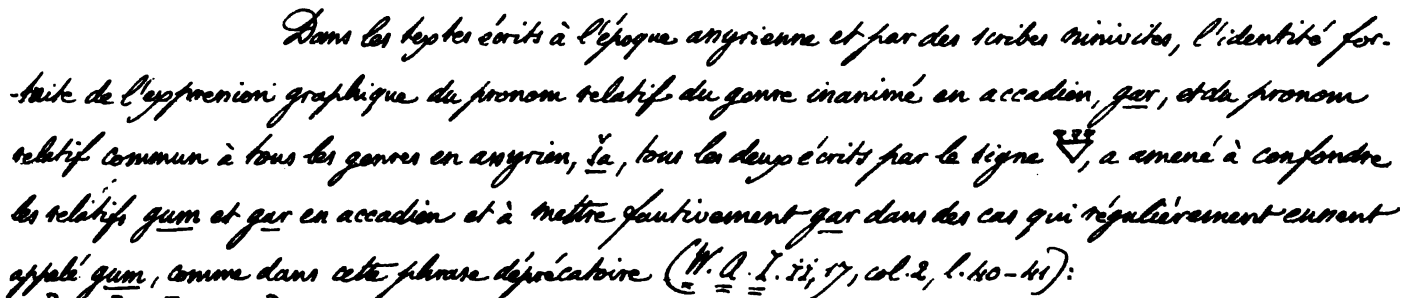 Dans les textes écrits à l'époque assyrienne et par des scribes ninivites, l'identité for-
-tuite de l'expression graphique du pronom relatif du genre inanimé en accadien, gar, et du pronom
relatif commun à tous les genres en assyrien, ša, tous les deux écrits par le signe 𒐼, a amené à confondre
les relatifs gum et gar en accadien et à mettre fautivement gar dans des cas qui régulièrement eussent
appelé gum, comme dans cette phrase déprécatoire (W. A. I. ii, 17, col. 2, l. 40-41):